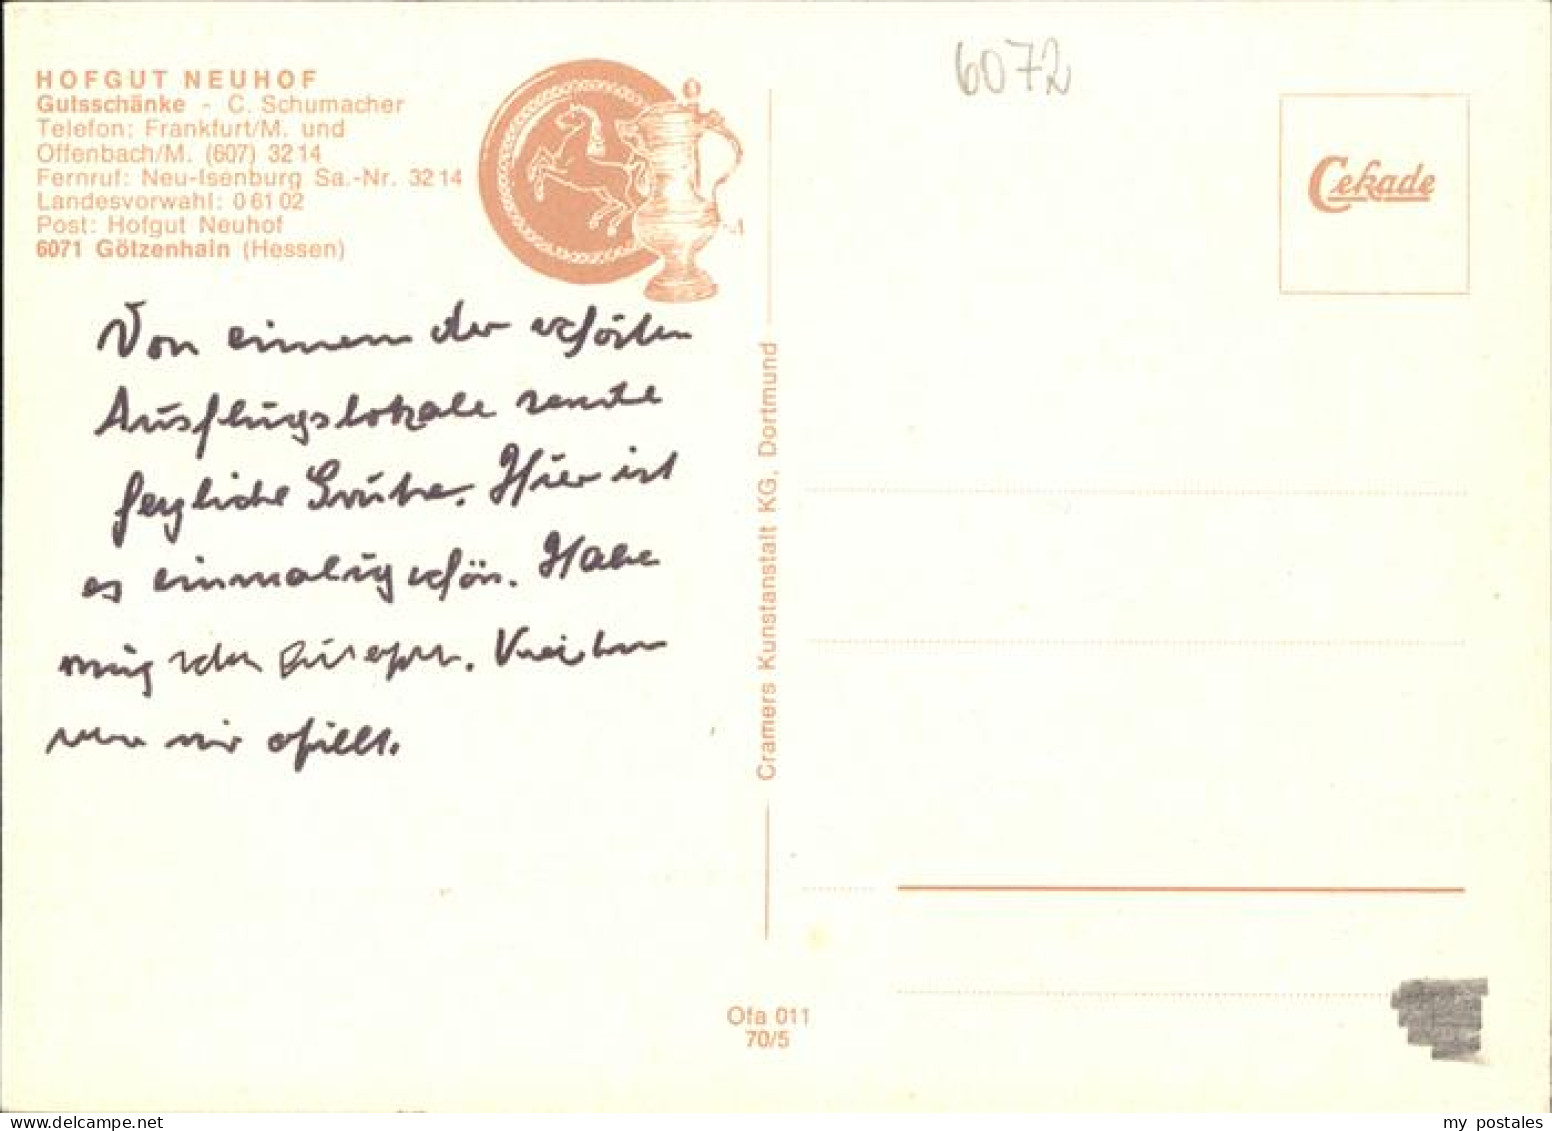 HOFGUT NEUHOF
Gutsschänke - C. Schumacher
Telefon: Frankfurt/M. und
Offenbach/M. (607) 32 14
Fernruf: Neu-Isenburg Sa.-Nr. 32 14
Landesvorwahl: 0 61 02
Post: Hofgut Neuhof
6071 Götzenhain (Hessen)
6072
Cekade
Von einem der schönsten
Ausflugslokale sende
herzliche Grüße. Hier ist
es einmalig schön. Habe
mich
mir
Cramers Kunstanstalt KG, Dortmund
Ofa 011
70/5
my postales